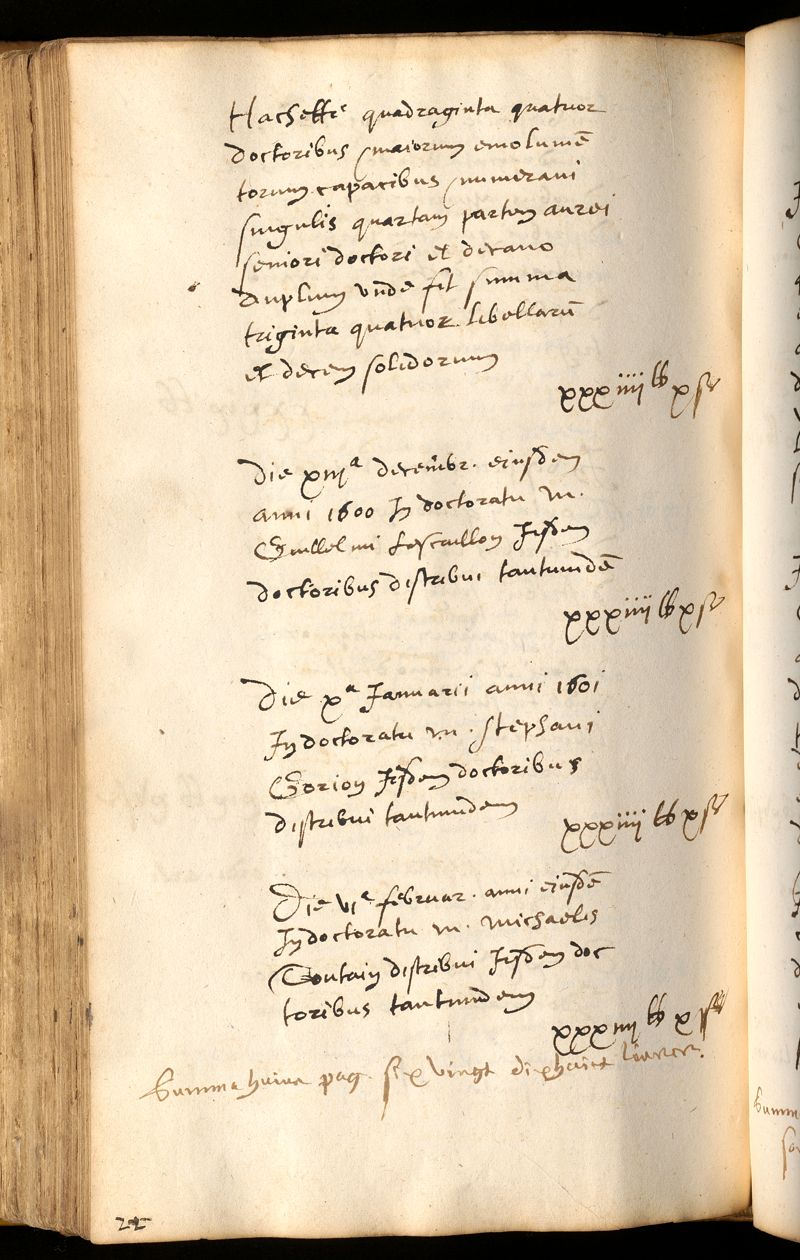 Hacheffe quadraginta quatuor
doctoribus maiorum emolumē
torum capacibus numeravi
singulis quartam partem aurei
seniori doctori et decano
duplum vnde fit summa
triginta quatuor libellarū
et decem solidorum
xxxiiii lb x s
Die xiiiª decembr. eiusdem
anni 1600 In doctoratu m.
Guillelmi Lescaillon Iisdem
doctoribus distribui tantundē
xxxiiii lb x s
Die xª Ianuarii anni 1601
In doctoratu m. stephani
Gorion Iisdem doctoribus
distribui tantundem
xxxiiii lb x s
Die viª februar. anni eiusdē
In doctoratu m. Michaelis
Toutain distribui Iisdem doc
toribus tantundem
xxxiiii lb x s
Summa huius pag. six vingt dixhuict livres.